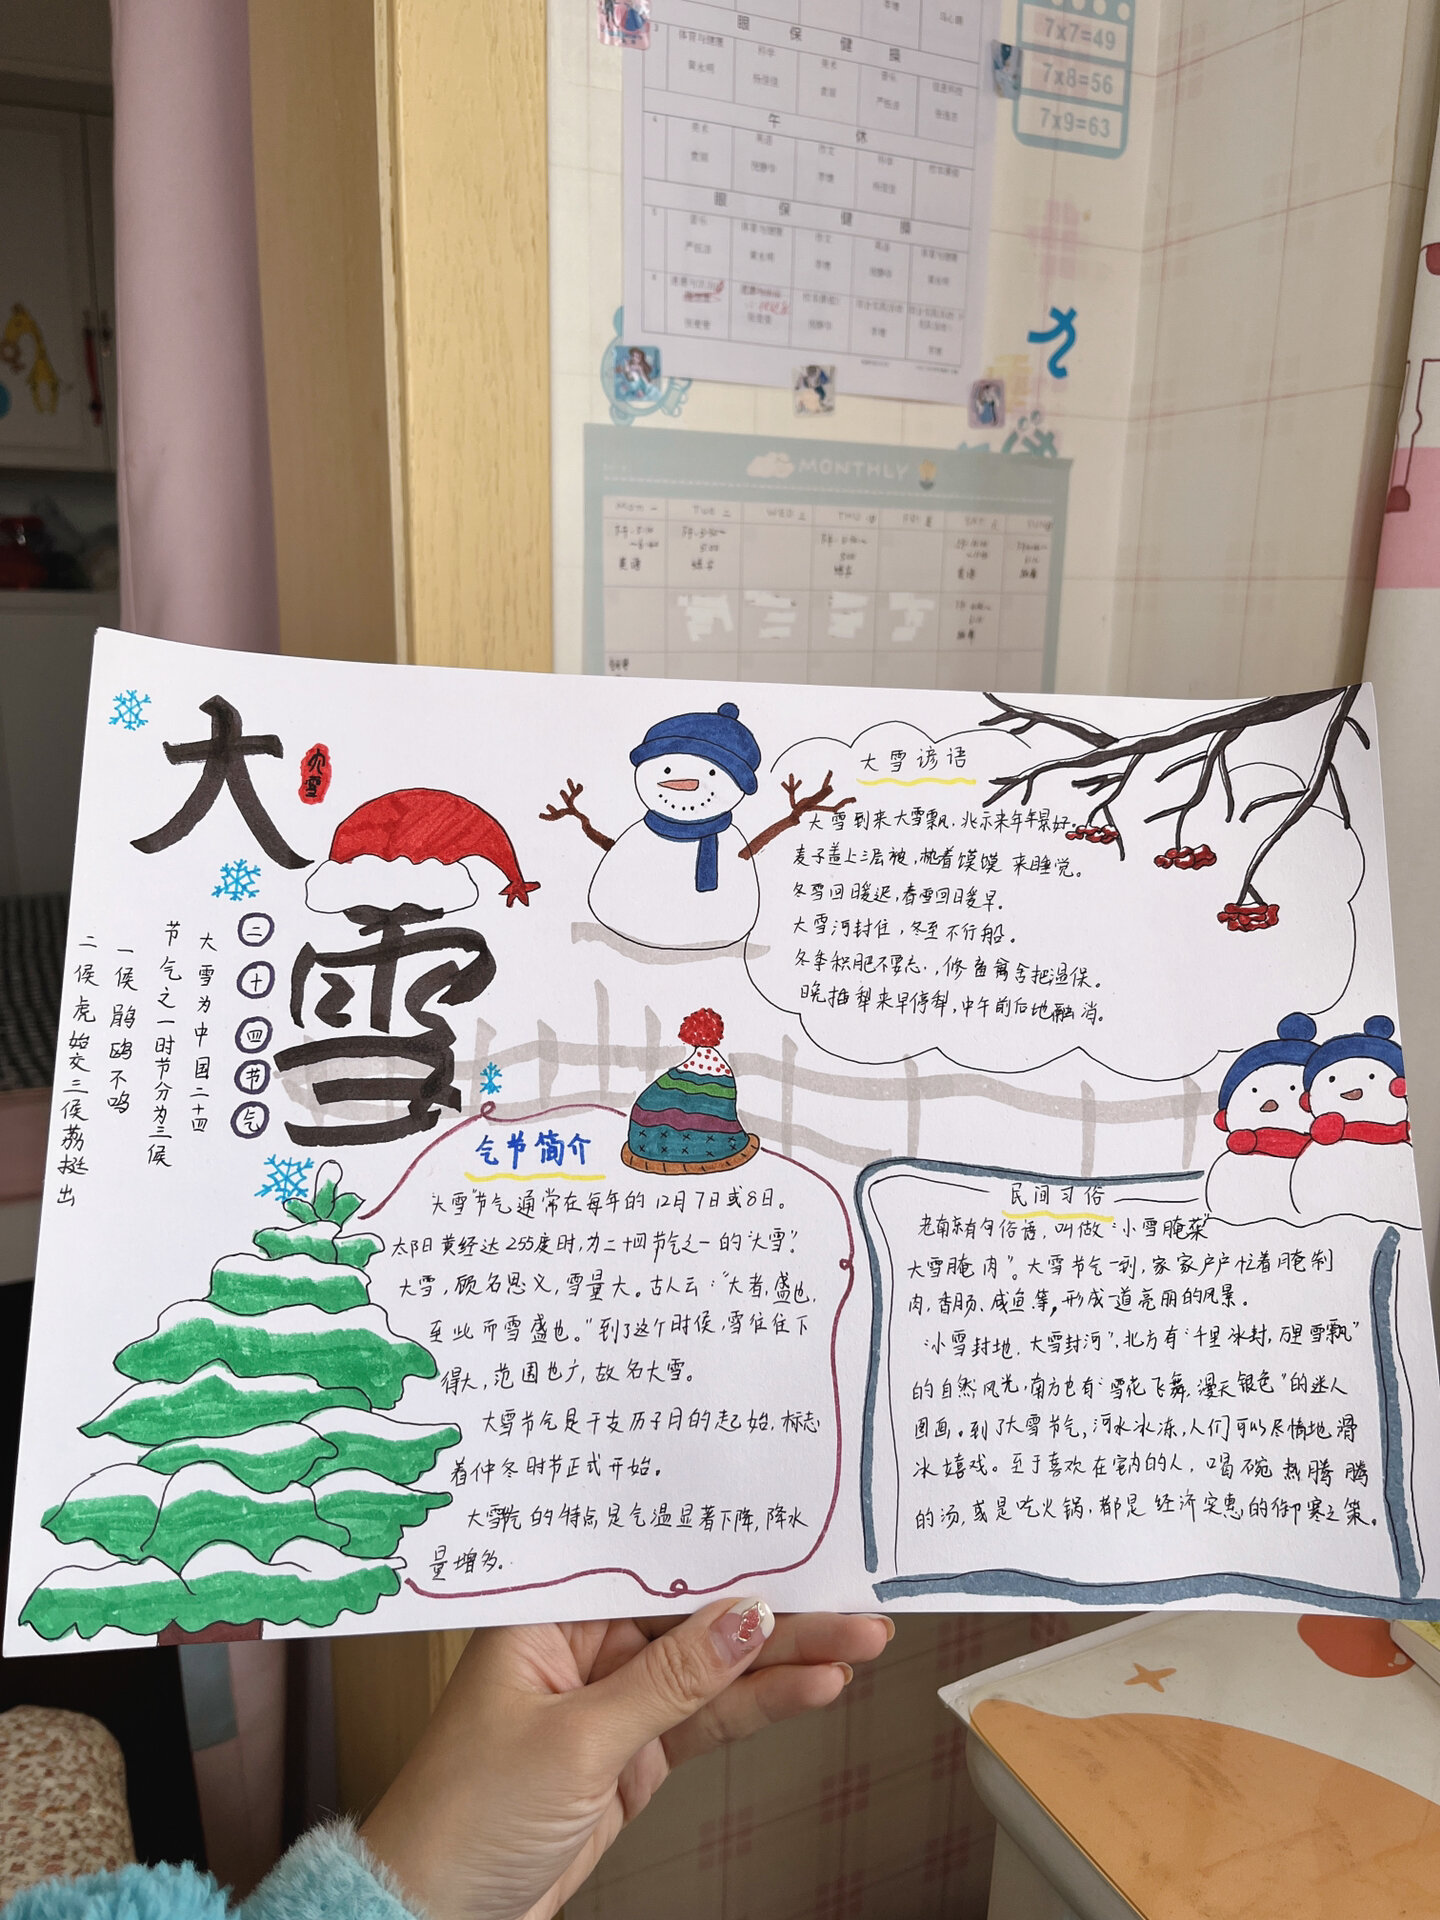 7x7=49
7x8=56
7x9=63
眼保健操
午休
眼保健操
MONTHLY
大雪
大雪
二十四节气
大雪为中国二十四
节气之一时节分为三候
一候鹖鸥不鸣
二候虎始交三候荔挺出
大雪谚语
大雪到来大雪飘,兆示来年年景好。
麦子盖上三层被,枕着馍馍来睡觉。
冬雪回暖迟,春雪回暖早。
大雪河封住,冬至不行船。
冬季积肥不要忘,修畜禽舍把温保。
晚抽犁来早停犁,中午前后地融消。
气节简介
“大雪”节气通常在每年的12月7日或8日。
太阳黄经达255度时,为二十四节气之一的“大雪”。
大雪,顾名思义,雪量大。古人云:“大者,盛也,
至此而雪盛也。”到了这个时候,雪往往下
得大,范围也广,故名大雪。
大雪节气是干支历子月的起始,标志
着仲冬时节正式开始。
大雪节气的特点是气温显著下降,降水
量增多。
民间习俗
老南京有句俗语,叫做“小雪腌菜”
大雪腌肉”。大雪节气一到,家家户户忙着腌制
肉,香肠、咸鱼等,形成一道亮丽的风景。
“小雪封地,大雪封河”,北方有“千里冰封,万里雪飘”
的自然风光,南方也有“雪花飞舞,漫天银色”的迷人
图画。到了大雪节气,河水冰冻,人们可以尽情地滑
冰嬉戏。至于喜欢在室内的人,喝碗热腾腾
的汤,或是吃火锅,都是经济实惠的御寒之策。